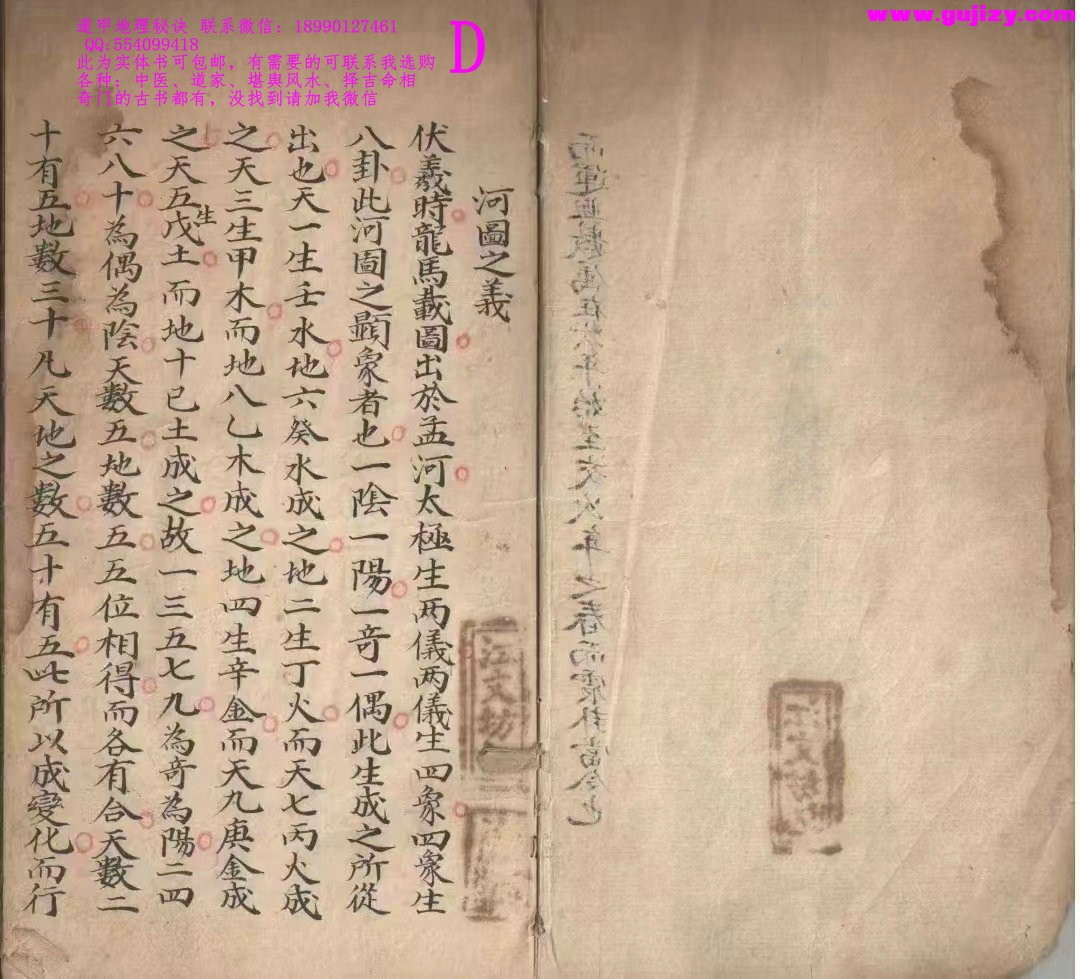 遁甲地理秘诀 联系微信：18990127461
QQ:554099418
此为实体书可包邮，有需要的可联系我选购
各种：中医、道家、堪舆风水、择吉命相
奇门的古书都有，没找到请加我微信
D
www.gujizy.com
河圖之義
伏羲時龍馬載圖出於孟河太極生两儀两儀生四象四象生
八卦此河圖之顯象者也一陰一陽一竒一偶此生成之所從
出也天一生壬水地六癸水成之地二生丁火而天七丙火成
之天三生甲木而地八乙木成之地四生辛金而天九庚金成
之天五生戊土而地十己土成之故一三五七九為竒為陽二四
六八十為偶為陰天數五地數五五位相得而各有合天數二
十有五地數三十凡天地之數五十有五此所以成變化而行
江文坊